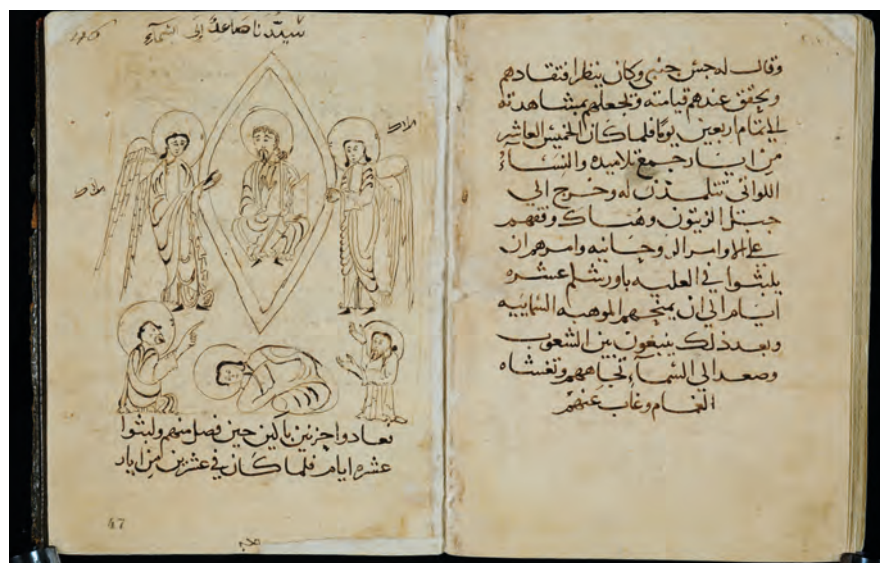 وقال له جس جنبي وكان ينظر افتقادهم
ويحقق عندهم قيامته ويجعلهم بمشاهدته
لإتمام اربعين يومًا فلما كان الخميس العاشر
من ايار جمع تلاميذه والنساء
اللواتي تتلمذن له وخرج الي
جبل الزيتون وهناك وقفهم
علي الاوامر الروحانيه وامرهم ان
يلبثوا في العليه باورشلم عشره
ايام الي ان يمنحهم الموهبه السمائيه
وبعد ذلك ينبغون بين الشعوب
وصعد الي السماء تجاههم وتغشاه
الغمام وغاب عنهم
سيدنا صاعدًا إلى السماء
ملاك
ملاك
فعادوا حزنين باكين حين فصل منهم ولبثوا
عشره ايام فلما كان في عشرين من ايار
47